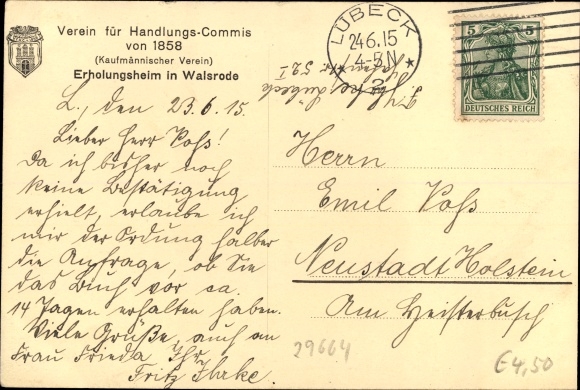 Verein für Handlungs-Commis
von 1858
(Kaufmännischer Verein)
Erholungsheim in Walsrode
L., den 23.6.15.
Lieber Herr Voß!
Da ich bisher noch
keine Bestätigung
erhielt, erlaube ich
mir der Ordnung halber
die Anfrage, ob Sie
das Buch vor ca.
14 Tagen erhalten haben.
Viele Grüße, auch an
Frau Frieda Ihr
Fritz Ihrke.
Lübeck
LÜBECK
24.6.15
4-5N
* 2 *
5 5
DEUTSCHES REICH
Herrn
Emil Voß
Neustadt Holstein
Am Heisterbusch
29664
€4,50